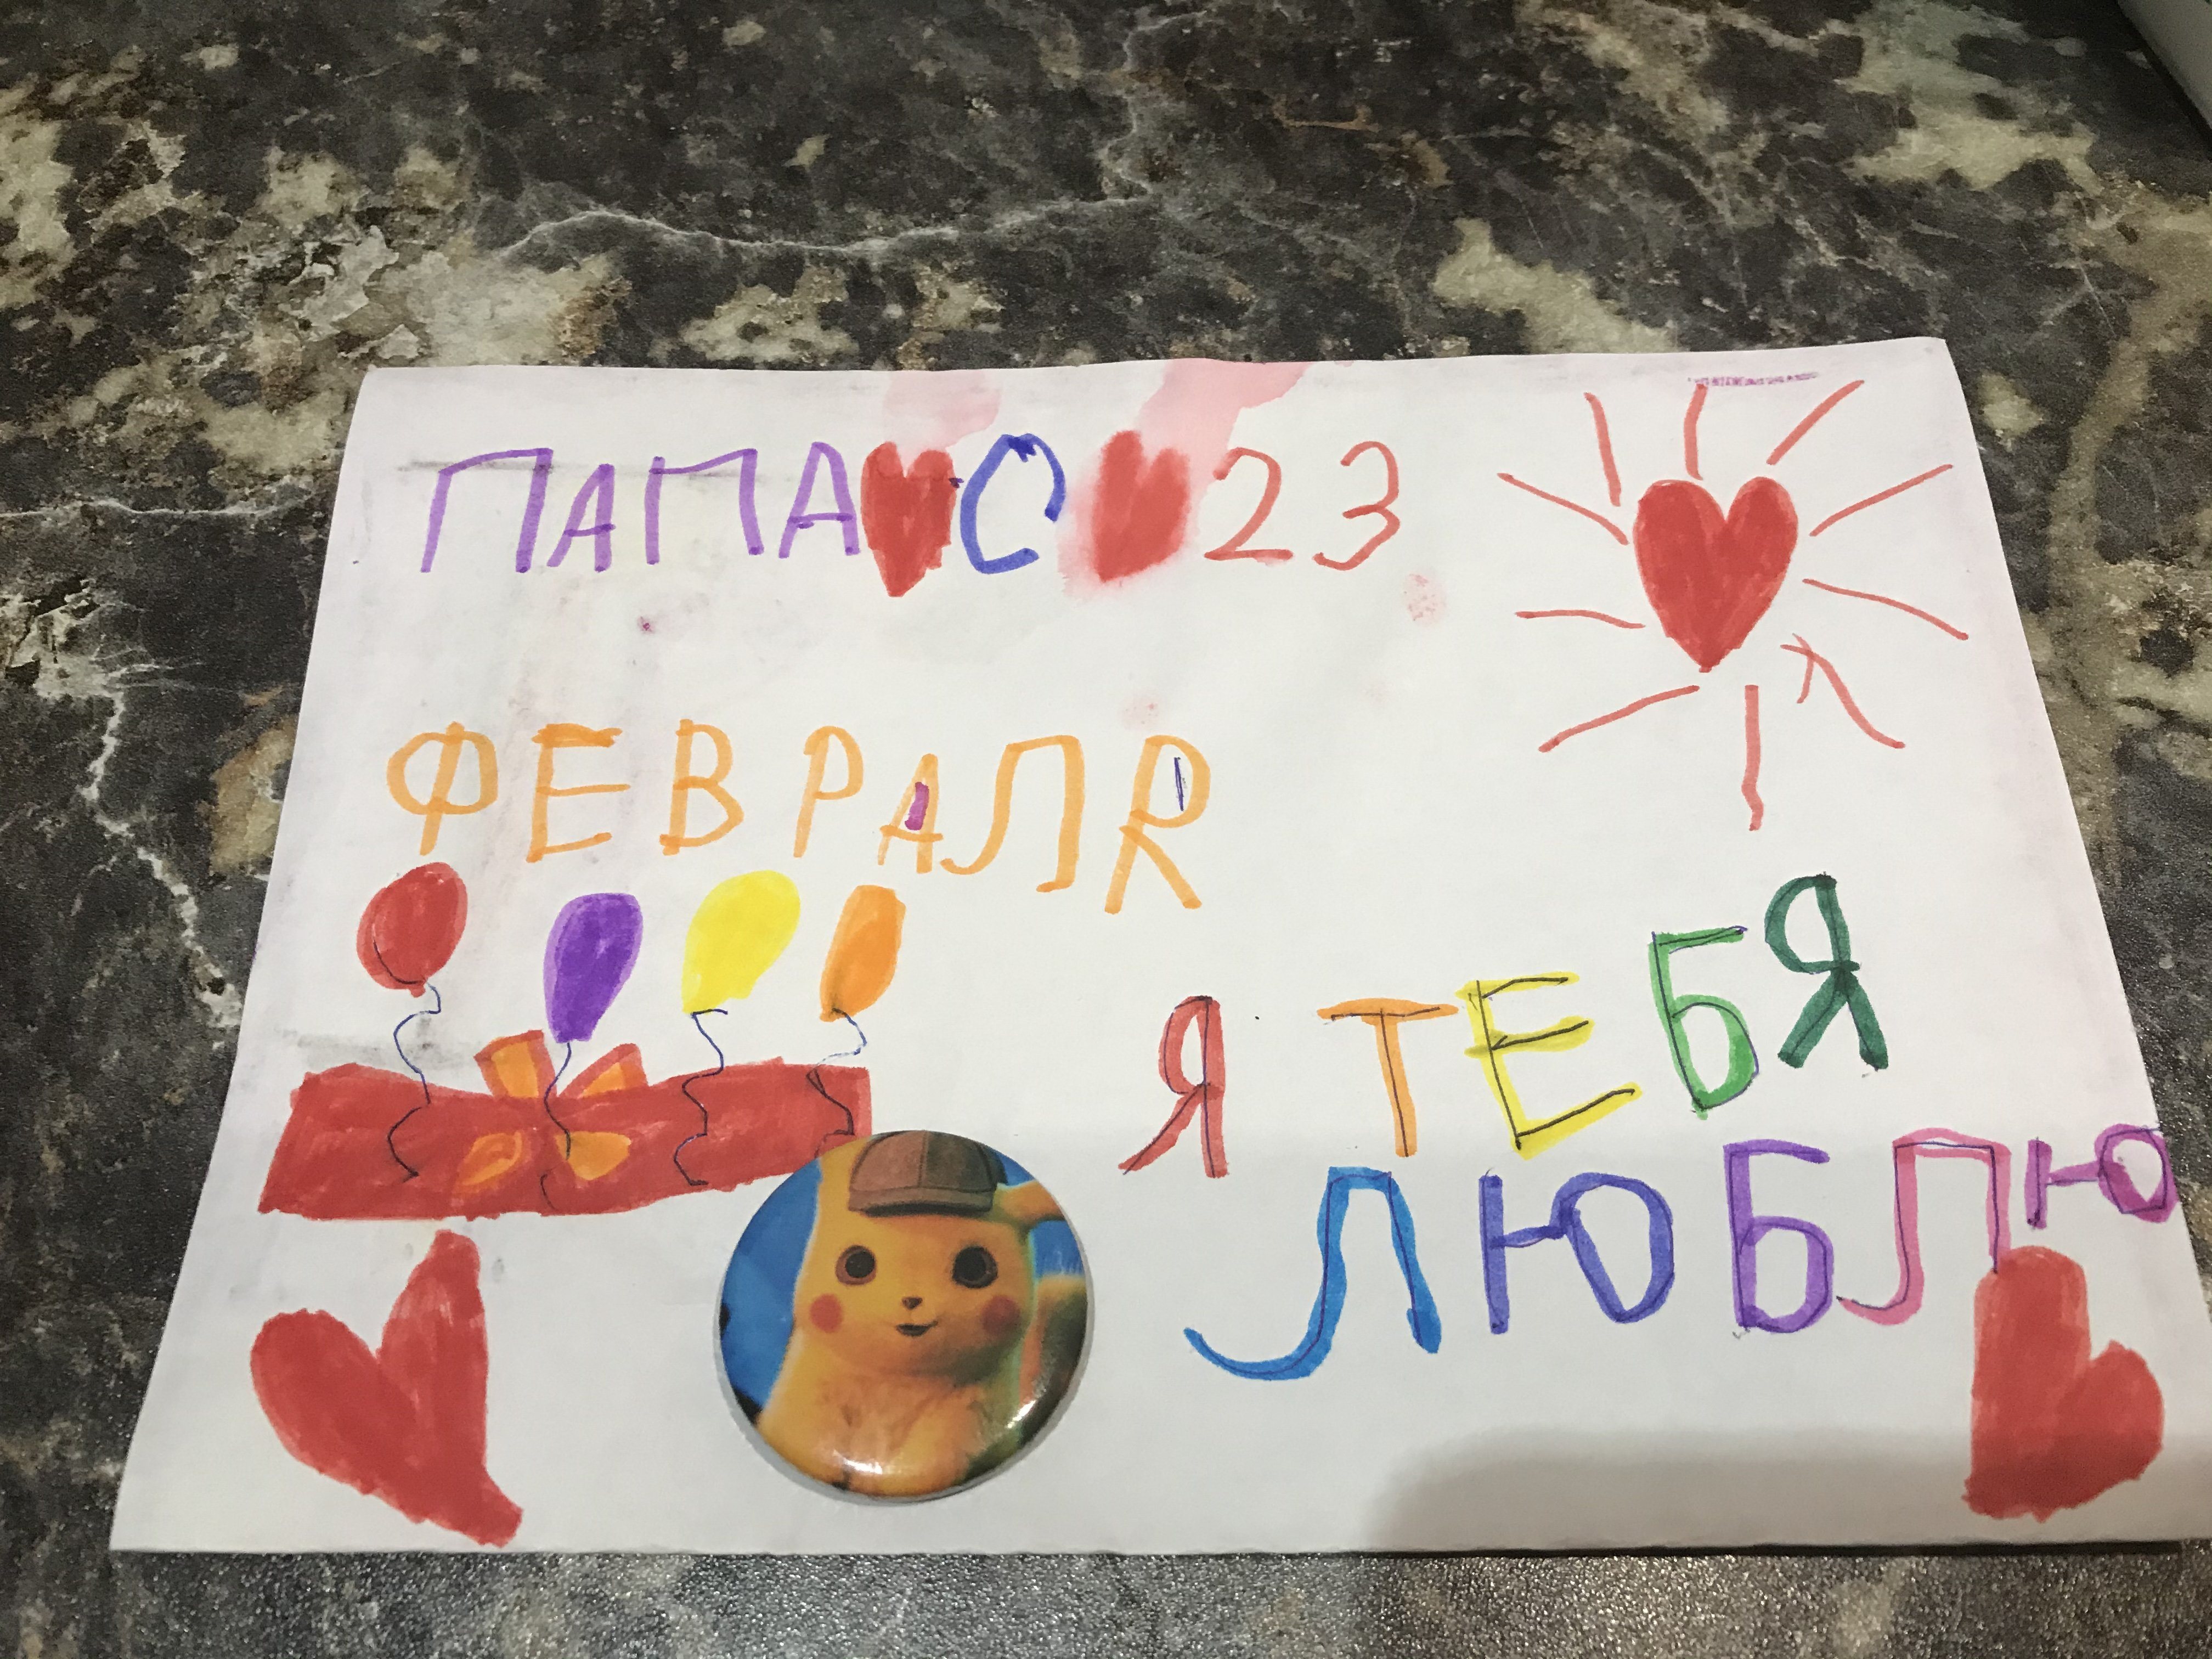 ПАПА С 23
ФЕВРАЛR
Я ТЕБЯ
ЛЮБЛЮ